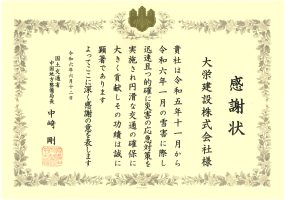 感謝状
大栄建設株式会社様
貴社は令和五年十一月から
令和六年一月の雪害に際し
迅速且つ的確に災害の応急対策を
実施され円滑な交通の確保に
大きく貢献しその功績は誠に
顕著であります
よってここに深く感謝の意を表します
令和六年六月十二日
国土交通省
中国地方整備局長
中﨑 剛